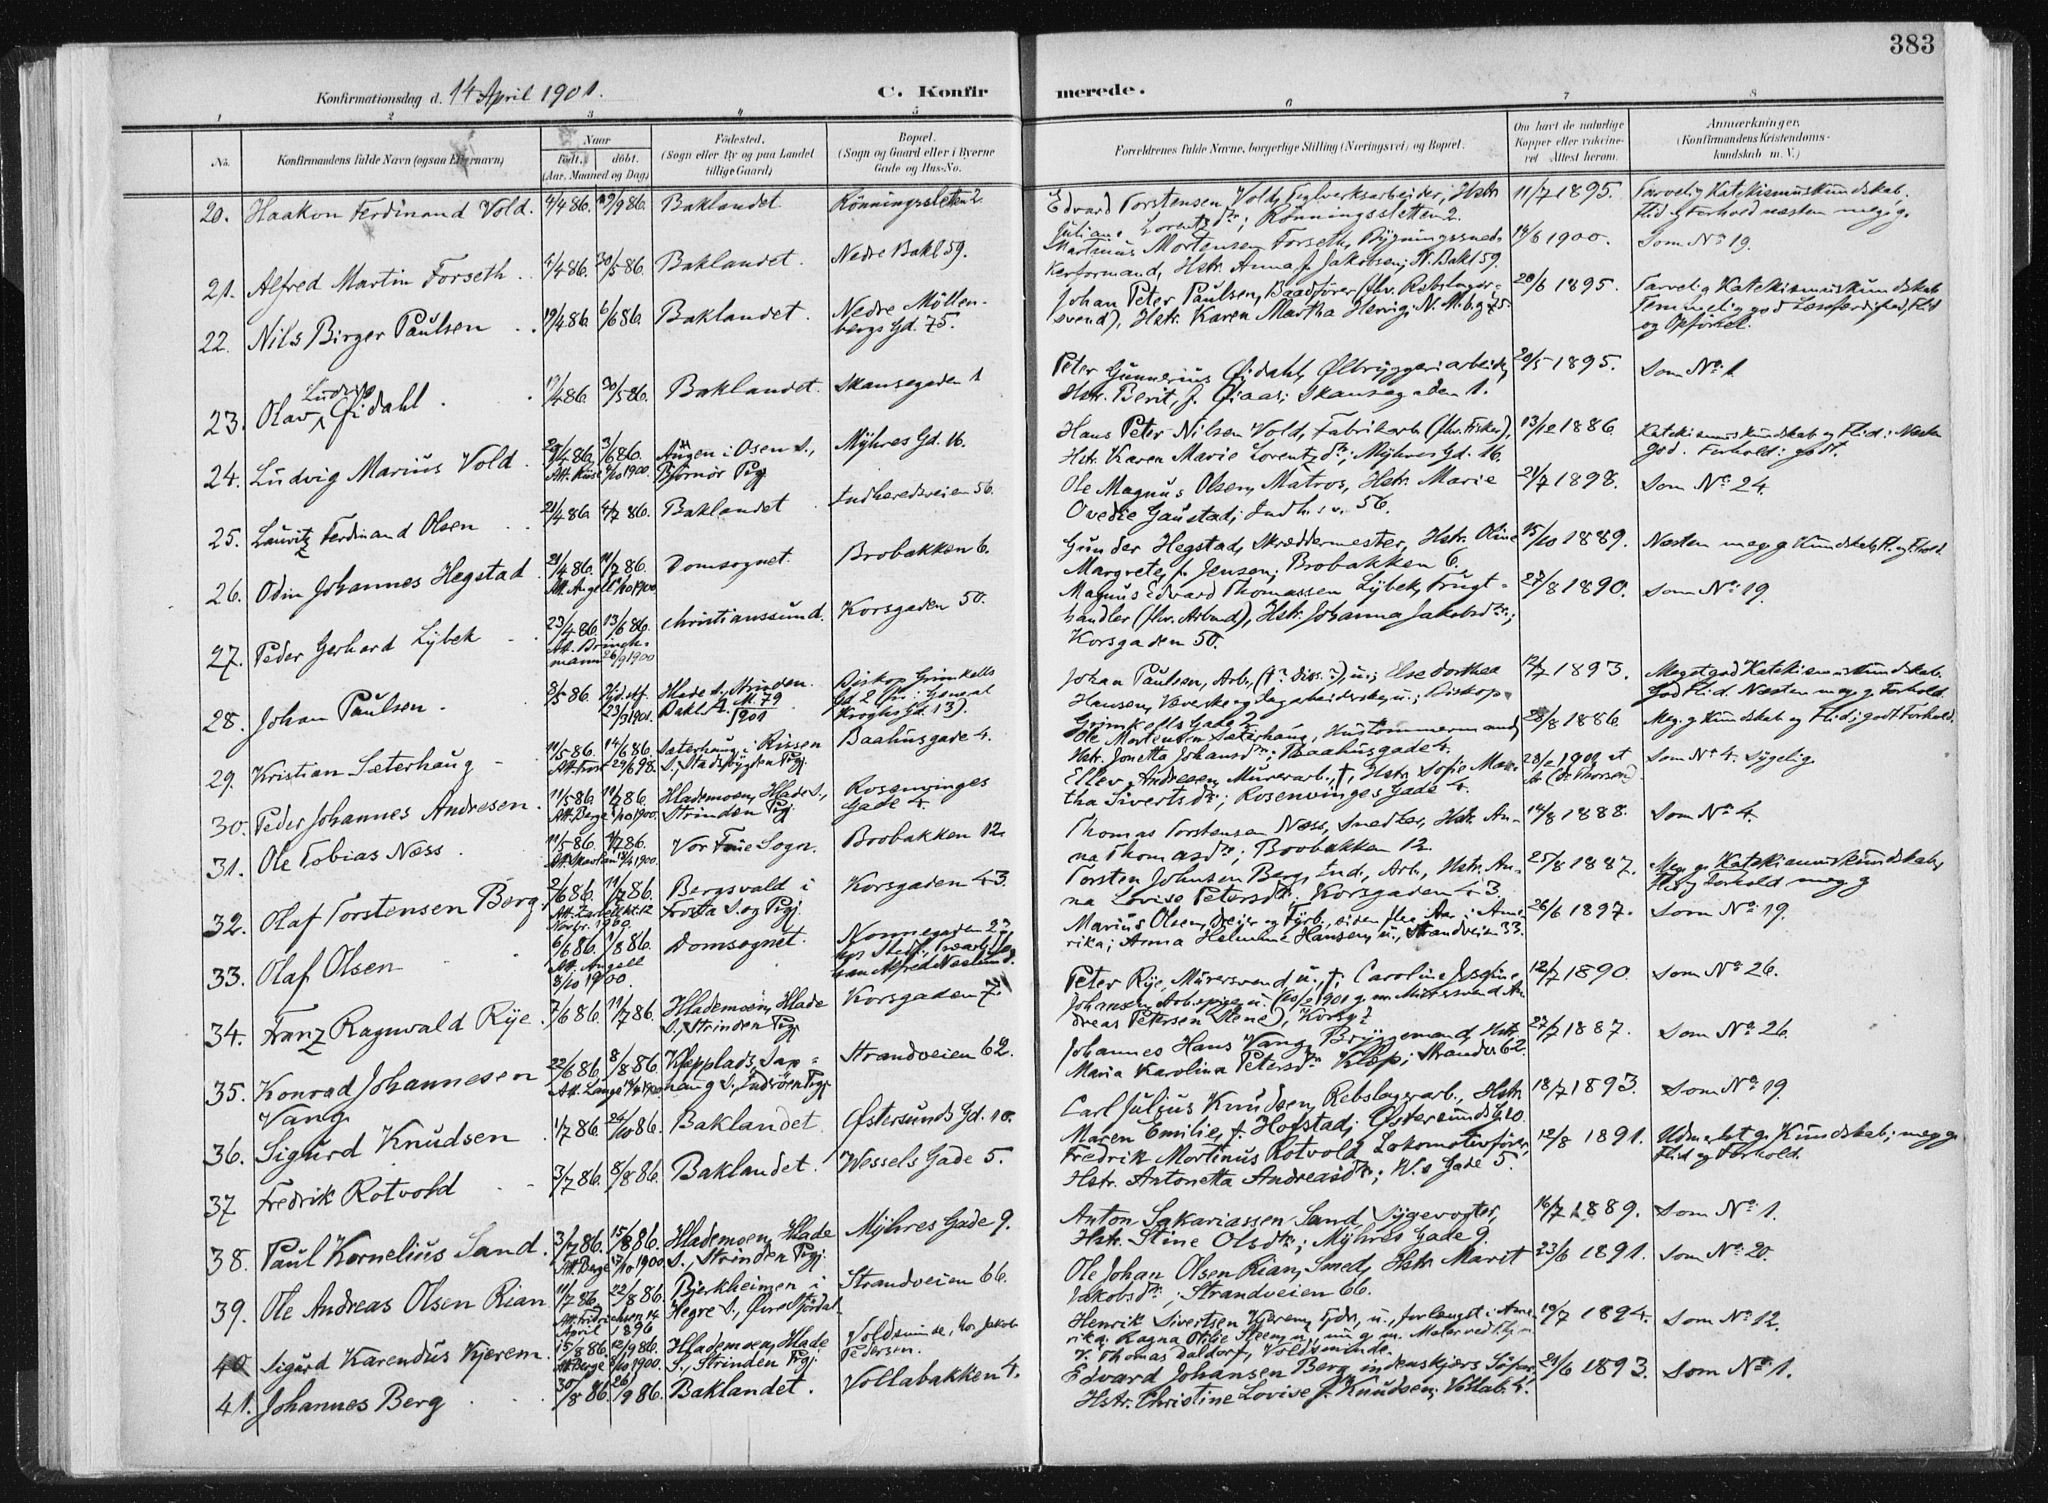 383
Konfirmationsdag d. 14 April 1901. C. Konfirmerede.
1 2 3 4 5 6 7 8
No. Konfirmandens fulde Navn (ogsaa Efternavn) Naar født, døbt. (Aar, Maaned og Dag) Fødested. (Sogn eller By og paa Landet tillige Gaard) Bopæl. (Sogn og Gaard eller i Byerne Gade og Hus-No. Forældrenes fulde Navne, borgerlige Stilling (Næringsvei) og Bopæl. Om havt de naturlige Kopper eller vaccineret. Attest herom. Anmærkninger. (Konfirmandens Kristendomskundskab m. V.)
20. Haakon Ferdinand Vold. 4/4 86. 19/9 86. Baklandet Rönningsletten 2. Edvard Torstensen Vold, Teglverksarbeider, Hstr. 11/7 1895. Tarvelig Katekismuskundskab.
Juliane Lorentzdtr; Rönningsletten 2. Flid & Forhold næsten meg. g.
21. Alfred Martin Forseth. 4/4 86. 30/5 86. Baklandet. Nedre Bakl 59. Martinus Mortensen Forseth, Bygningssned- 14/6 1900. Som No 19.
kerformand, Hstr. Anna f. Jakobsen; N. Bakl 59.
22. Nils Birger Paulsen 19/4 86. 6/6 86. Baklandet. Nedre Möllenbergs Gd. 75. Johan Peter Paulsen, Baadfører (fhv. Rebslager- 20/6 1895. Tarvelig Katekismuskundskab
svend), Hstr. Karen Martha Hervig; N. M.b.g 75. Temmelig god Læsefærdighed, Flid
og Opførsel.
23. Olav Ludvig Øidahl. 17/4 86. 30/5 86. Baklandet. Skansegaden 1 Peter Gunnerius Øidahl, Ølbryggeriarbeider, 20/5 1895. Som No 1.
Hstr. Berit, f. Øiaas; Skansegaden 1.
24. Ludvig Marius Vold. 20/4 86. 3/6 86. i Osen S., Myhres Gd. 16. Hans Peter Nilsen Vold, Fabrikarb. (fhv. Fisker), 13/12 1886. Katekismuskundskab og Flid: Næsten
1900. Bjørnör Pgj. Hstr. Karen Marie Lorentzdtr; Myhres Gd. 16. god. Forhold: godt.
25. Lauritz Ferdinand Olsen 21/4 86. 4/7 86. Baklandet Indherredsveien 56. Ole Magnus Olsen, Matros, Hstr. Marie 21/7 1898. Som No 24.
Ovedie Gaustad; Indh.v. 56.
26. Odin Johannes Hegstad 21/4 86. 11/7 86. Domsognet. Brobakken 6. Gunder Hegstad, Skræddermester, Hstr. Oline 15/10 1889. Næsten meg. g. Kundskab, Fl. og Forhold
Att. Angell 1900. Margrete, f. Jensen; Brobakken 6.
27. Peder Gerhard Lybek 23/4 86. 13/6 86. Christianssund. Korsgaden 50. Magnus Edvard Thomassen Lybek, Frugt- 27/8 1890. Som No 19.
Att. Brinchmann 26/9 1900 handler (fhv. Arbmd), Hstr. Johanna Jakobsdtr;
Korsgaden 50.
28. Johan Paulsen. 8/5 86. Hjd. stf. 23/3 1901. Hlade S., Strinden. Bakl. M. 79 1901 Biskop Grimkells Gd 2 (fr: General Kroghs Gd. 13). Johan Paulsen, Arb., († Diss.), u.; Else Dorthea 12/7 1893. Megetgod Katekismuskundskab.
Hansen, Væverske og Dagarbeiderske, u.; Biskop God Flid. Næsten meg. g. Forhold.
Grimkells Gade 2
29. Kristian Sæterhaug 11/5 86. 14/6 86. Sæterhaug i Rissen Baahusgade 4. Ole Mortensen Sæterhaug, Hustømmermand, 28/8 1886. Meg. g. Kundskab og Flid; godt Forhold.
29/6 98. S., Stadsbygden Pgj. Hstr. Jonetta Johansdtr; Baahusgade 4.
30. Peder Johannes Andresen. 11/5 86. 11/7 86. Hlademoen, Hlade S., Rosenvinges Gade 4. Ellev Andresen, Murerarb., †, Hstr. Sofie Mar- 28/2 1901 et Som No 4. Sygelig.
Att. Berge 1900. Strinden Pgj. tha Sivertsdtr; Rosenvinges Gade 4. (Dr. Thorsen).
31. Ole Tobias Næss. 11/5 86. 4/7 86. Vor Frue Sogn. Brobakken 12. Thomas Torstensen Næss, Snedker, Hstr. An- 14/8 1888. Som No 4.
1900. na Thomasdtr; Brobakken 12.
32. Olaf Torstensen Berg. 2/6 86. 11/7 86. Bergsvald i Korsgaden 43. Torsten Johnsen Berg, Ind., Arb., Hstr. An- 25/8 1887. Meg. g. Katekismuskundskab,
Novbr. 1900. Frosta S. og Pgj. na Lovise Petersdtr; Korsgaden 43. Flid og Forhold meg. g
33. Olaf Olsen 6/6 86. 1/8 86. Domsognet. Nonnegaden 27 Marius Olsen, Dreier og Fyrb., siden flere Aar i Ame- 26/6 1897. Som No 19.
Att. Angell 8/10 1900. rika; Anna Helmine Hansen, u., Strandveien 33.
34. Franz Ragnvald Rye. 7/6 86. 11/7 86. Hlademoen, Hlade Korsgaden 7. Peter Rye, Murersvend, u., †; Caroline Josefine 12/7 1890. Som No 26.
S., Strinden Pgj. Johansen, Arb.spige, u. (10/2 1901 g. m. Murersvend An-
dreas Petersen Stene), Korsg. 7
35. Konrad Johannesen Vang 22/6 86. 8/8 86. Kleppplads, Sax- Strandveien 62. Johannes Hans Vang, Bryggemand, Hstr. 27/7 1887. Som No 26.
Att. Lange 1900 haug S., Inderöen Pgj. Maria Karolina Petersdtr Klep; Strandv. 62.
36. Sigurd Knudsen 1/7 86. 24/10 86. Baklandet. Østersunds Gd. 10. Carl Julius Knudsen, Rebslagerarb., Hstr. 18/7 1893. Som No 19.
Maren Emilie, f. Hofstad; Østersunds Gd 10.
37 Fredrik Rotvold 3/7 86. 8/8 86. Baklandet. Wessels Gade 5. Fredrik Martinus Rotvold, Lokomotivfører, 12/8 1891. Udmerket g. Kundskab; meg. g.
Hstr. Antonetta Andreasdtr; W.s Gade 5. Flid og Forhold.
38. Paul Kornelius Sand. 3/7 86. 15/8 86. Hlademoen, Hlade Myhres Gade 9. Anton Sakariassen Sand, Sygevogter, 16/7 1889. Som No 1.
Att. Berge 17/10 1900. S., Strinden Pgj. Hstr. Stine Olsdtr; Myhres Gade 9.
39. Ole Andreas Olsen Rian 11/7 86. 22/8 86. Bjerkheimen i Strandveien 66. Ole Johan Olsen Rian, Smed, Hstr. Marit 23/6 1891. Som No 20.
Att. Fridrichsen 14 April 1896 Hegre S., Øvre Stjørdal. Jakobsdtr; Strandveien 66.
40. Sigurd Karendus Kjerem. 15/8 86. 12/9 86. Hlademoen, Hlade Voldsminde, hos Jakob Pedersen. Henrik Sivertsen Kjerem, u., forlængst i Ame- 19/7 1894. Som No 12.
Att. Berge 8/10 1900. S., Strinden Pgj. rika. Ragna Otilie Steen, u., nu g. m. Maler
Thomas Daldorf, Voldsminde.
41. Johannes Berg 30/8 86. 26/9 86. Baklandet. Vollabakken 4. Edvard Johansen Berg, indenskjærs Søfar., 21/6 1893. Som No 1.
Hstr. Christine Lovise f. Knudsen; Vollab. 4.